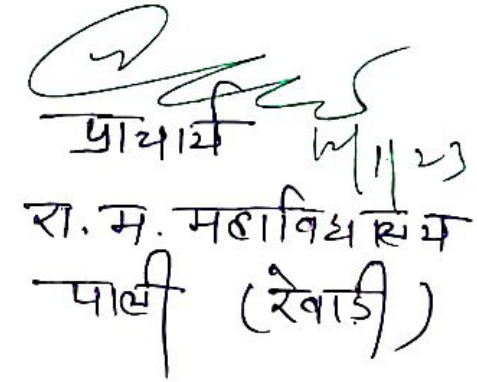 प्राचार्य
रा. म. महाविद्यालय
पाली (रेवाड़ी)